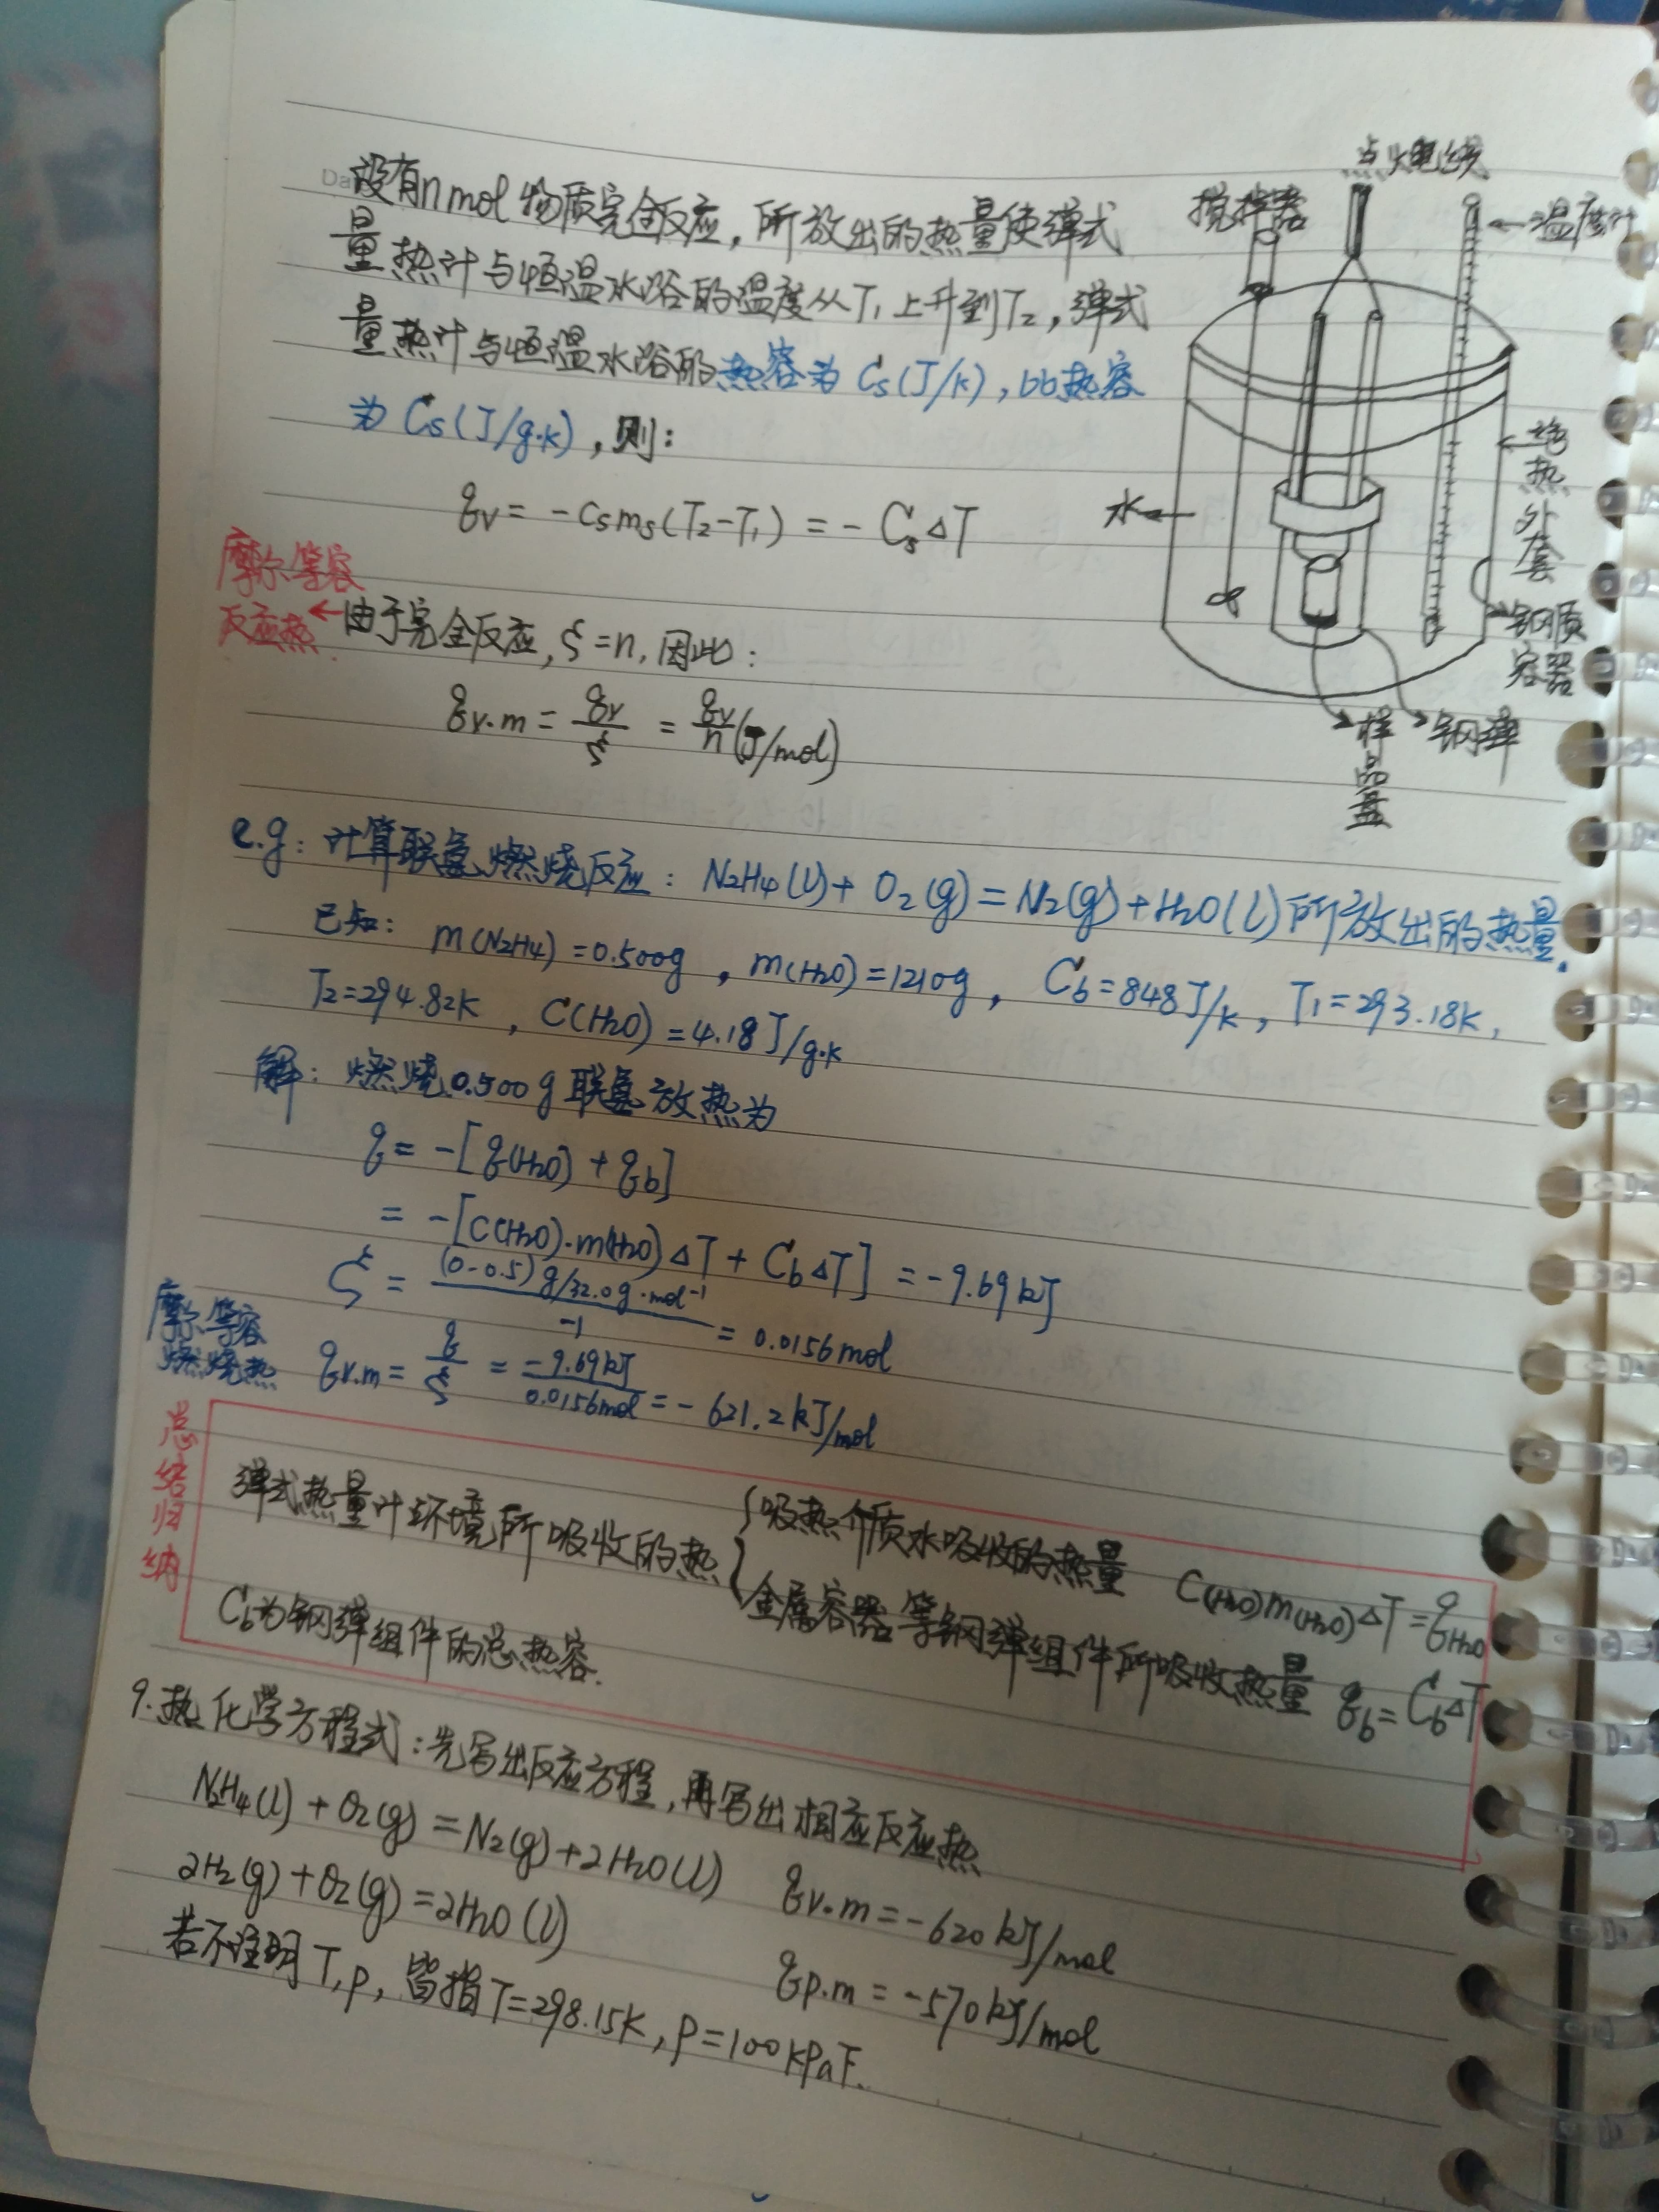 设有n mol 物质完全反应，所放出的热量使弹式
量热计与恒温水浴的温度从T₁上升到T₂，弹式
量热计与恒温水浴的热容为 Cs(J/k)，bb热容
为 Cs(J/g·k)，则：
qv = -csms(T₂-T₁) = - CsΔT
摩尔等容
反应热 ← 由于完全反应，ξ=n，因此：
qv.m = qv/ξ = qv/n (J/mol)
点火电线
搅拌器
←温度计
绝热外套
水
钢质容器
样品盘
钢弹
e.g：计算联氨燃烧反应：N₂H₄(l) + O₂(g) = N₂(g) + H₂O(l) 所放出的热量。
已知： m(N₂H₄) = 0.500g ，m(H₂O) = 1210g， Cb = 848J/k，T₁ = 293.18k，
T₂=294.82K ，C(H₂O) = 4.18J/g·k
解：燃烧0.500g联氨放热为
q = -[q(H₂O) + qb]
= -[C(H₂O)·m(H₂O)ΔT + CbΔT] = -9.69kJ
ξ = (0-0.5)g/32.0g·mol⁻¹ / -1 = 0.0156mol
摩尔等容
燃烧热 qv.m = q/ξ = -9.69kJ/0.0156mol = -621.2kJ/mol
总结归纳
弹式热量计环境所吸收的热 { 吸热介质水吸收的热量 C(H₂O)m(H₂O)ΔT = qH₂O
金属容器等钢弹组件所吸收热量 qb = CbΔT
Cb为钢弹组件的总热容.
9.热化学方程式：先写出反应方程，再写出相应反应热
N₂H₄(l) + O₂(g) = N₂(g) + 2H₂O(l) qv.m = -620kJ/mol
2H₂(g) + O₂(g) = 2H₂O(l) qp.m = -570kJ/mol
若不注明T,p，皆指T=298.15K，P=100KPa下.